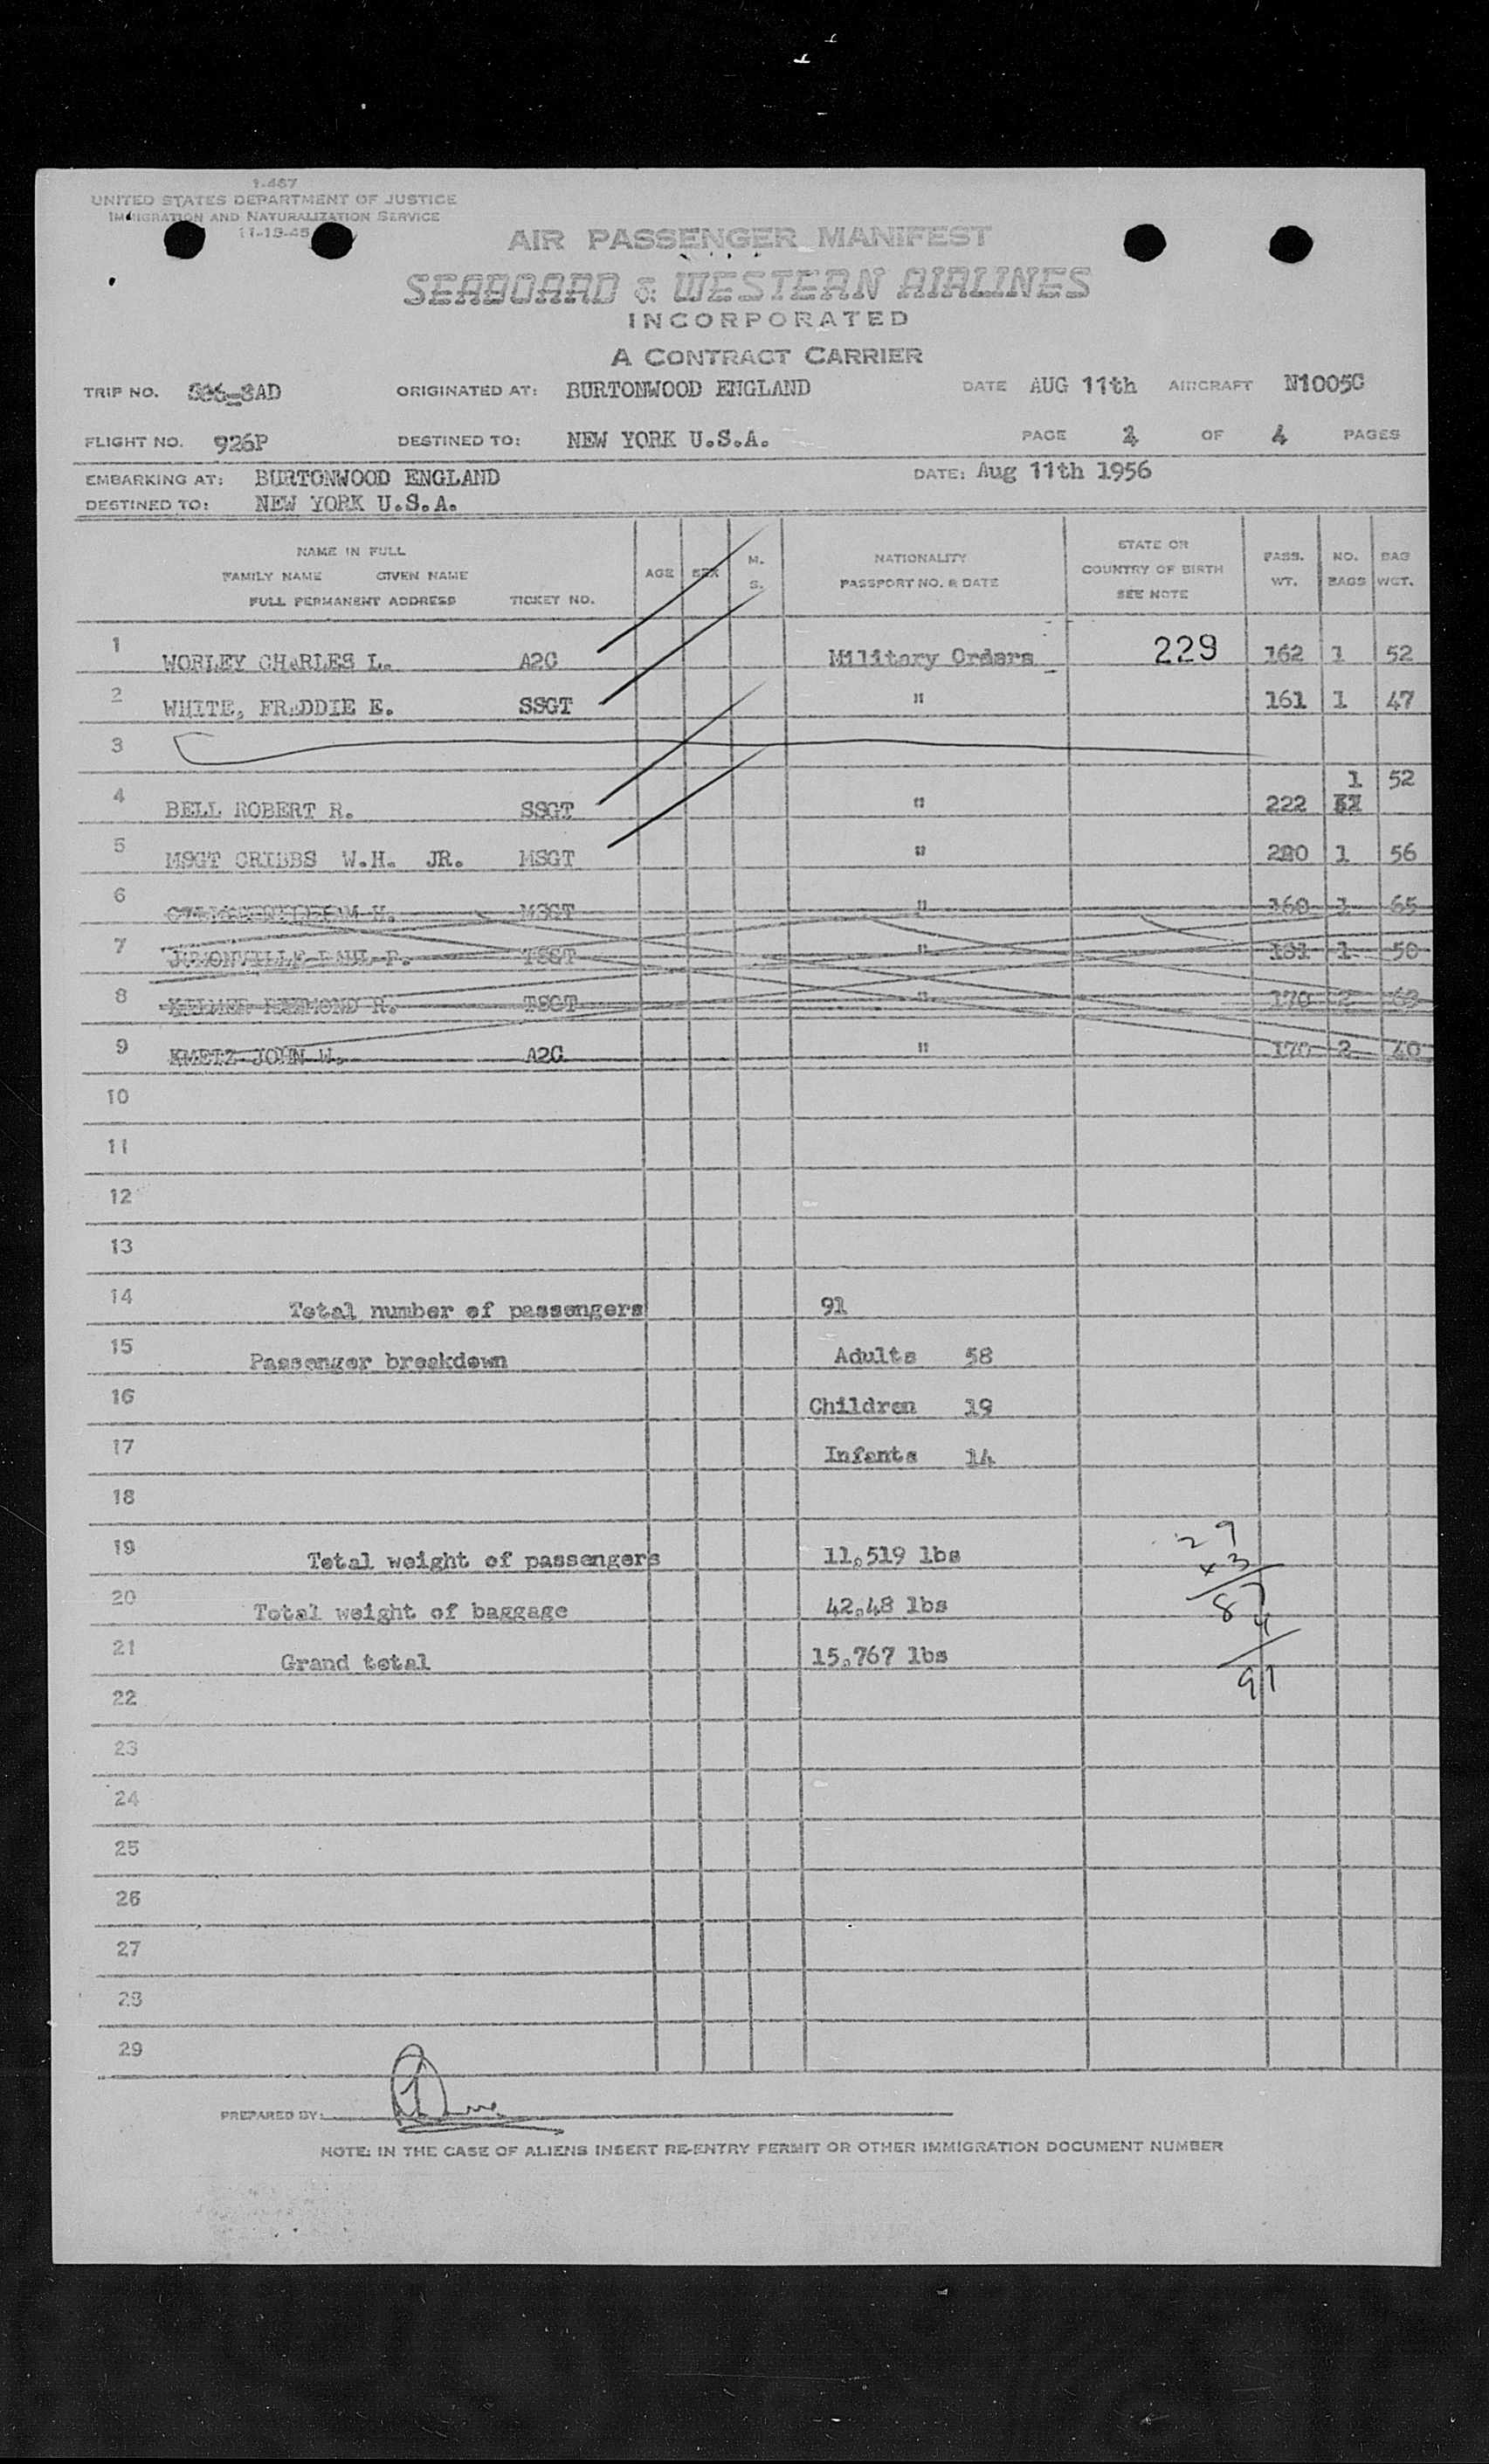 1-467
UNITED STATES DEPARTMENT OF JUSTICE
IMMIGRATION AND NATURALIZATION SERVICE
11-13-45
AIR PASSENGER MANIFEST
SEABOARD & WESTERN AIRLINES
INCORPORATED
A CONTRACT CARRIER
TRIP NO. ORIGINATED AT: BURTONWOOD ENGLAND DATE AUG 11th AIRCRAFT N1005C
FLIGHT NO. 926P DESTINED TO: NEW YORK U.S.A. PAGE OF 4 PAGES
EMBARKING AT: BURTONWOOD ENGLAND DATE: Aug 11th 1956
DESTINED TO: NEW YORK U.S.A.
NAME IN FULL
FAMILY NAME GIVEN NAME
FULL PERMANENT ADDRESS TICKET NO. AGE SEX M. S. NATIONALITY PASSPORT NO. & DATE STATE OR COUNTRY OF BIRTH SEE NOTE PASS. WT. NO. BAGS BAG WGT.
1 WORLEY CHARLES L. A2C Military Orders 229 162 1 52
2 WHITE, FRADDIE E. SSGT " 161 1 47
3
4 BELL ROBERT R. SSGT " 222 1 52
5 MSGT CRIBBS W.H. JR. MSGT " 1 56
6 H. MSGT " 160 1 65
7 P. TSGT " 181 1 50
8 RAYMOND R. TSGT " 170 2 63
9 KMETZ JOHN W. A2C " 170 2 40
10
11
12
13
14 Total number of passengers 91
15 Passenger breakdown Adults 58
16 Children 19
17 Infants 14
18
19 Total weight of passengers 11,519 lbs
20 Total weight of baggage 42,48 lbs
21 Grand total 15,767 lbs
29
x3
87
4
91
22
23
24
25
26
27
28
29
PREPARED BY:
NOTE: IN THE CASE OF ALIENS INSERT RE-ENTRY PERMIT OR OTHER IMMIGRATION DOCUMENT NUMBER